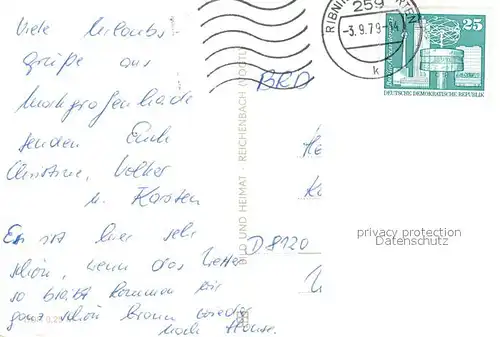 Viele Urlaubs-
grüße aus
senden Euch
Christine, Volker
u. Karsten
Es ist hier sehr
schön, wenn das Wetter
so bleibt kommen wir
ganz schön braun wieder
nach Hause.
BILD UND HEIMAT · REICHENBACH (VOGTL
259
RIBNI
-3.9.79-14
k
25
DEUTSCHE DEMOKRATISCHE REPUBLIK
BRD
He
D 8120
privacy protection
Datenschutz